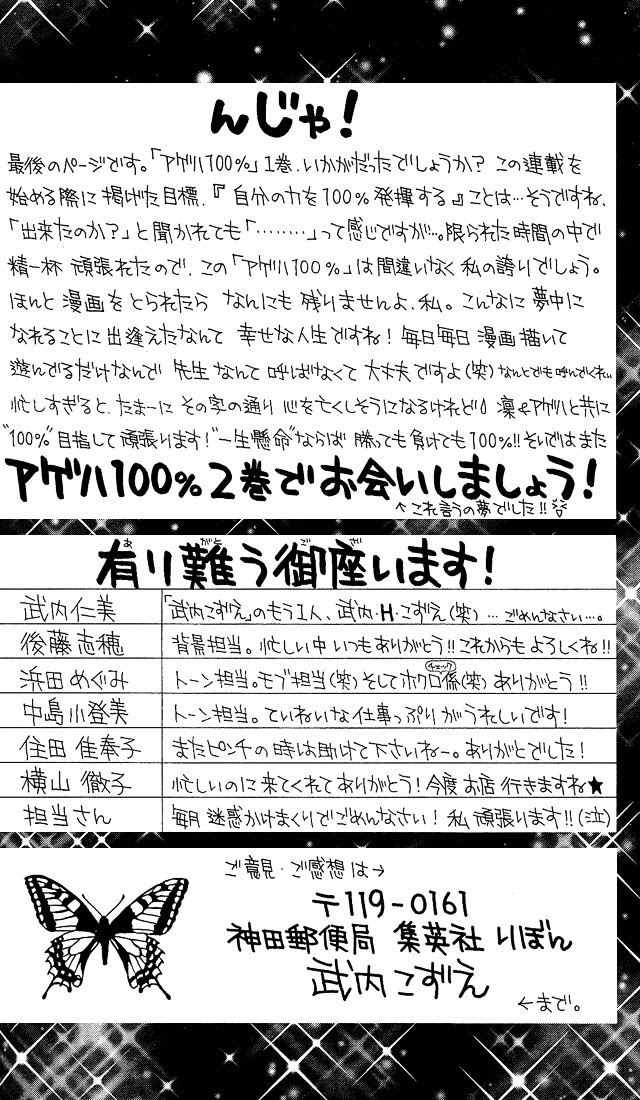 んじゃ!
最後のページです。「アゲハ100%」1巻、いかがだったでしょうか? この連載を
始める際に掲げた目標、『自分の力を100%発揮する』ことは…そうですね、
「出来たのか?」と聞かれても「………」って感じですが…。限られた時間の中で
精一杯 頑張れたので、この「アゲハ100%」は間違いなく私の誇りでしょう。
ほんと 漫画をとられたら なんにも 残りませんよ、私。こんなに 夢中に
なれることに出逢えたなんて 幸せな人生ですね! 毎日毎日 漫画描いて
遊んでるだけなんで 先生なんて 呼ばなくて 大丈夫ですよ(笑) なんとでも呼んでくれぃ
忙しすぎると、たまーに その字の通り 心を亡くしそうになるけれど 凛&アゲハと共に
"100%"目指して 頑張ります! "一生懸命"ならば 勝っても負けても100%!! そいではまた
アゲハ100%2巻でお会いしましょう!
↑これ言うの夢でした!!
有り難う御座います!
あ がと ご ざ
武内仁美 「武内こずえ」のもう1人、武内・H・こずえ(笑) … ごめんなさい…。
後藤志穂 背景担当。忙しい中 いつもありがとう!! これからも よろしくね!!
浜田めぐみ トーン担当。モブ担当(笑) そして ホクロ係(笑) ありがとう!!
チェック
中島小登美 トーン担当。ていねいな仕事っぷりがうれしいです!
住田佳奉子 またピンチの時は助けて下さいねー。ありがとでした!
横山 徹子 忙しいのに 来てくれて ありがとう! 今度 お店 行きますね★
担当さん 毎月 迷惑かけまくりでごめんなさい! 私 頑張ります!!(泣)
ご意見・ご感想は→
〒119-0161
神田郵便局 集英社 りぼん
武内こずえ
←まで。